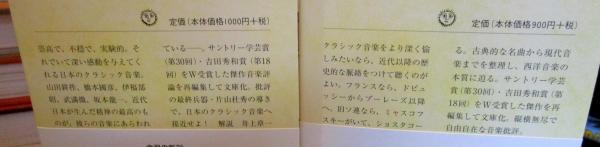 定価（本体価格1000円+税）
崇高で、不穏で、実験的。そ
れでいて深い感動を与えてく
れる日本のクラシック音楽。
山田耕筰、橋本國彦、伊福部
昭、武満徹、坂本龍一。近代
日本が生んだ精神の最高のも
のが、彼らの音楽にあらわれ
ている――。サントリー学芸賞
（第30回）・吉田秀和賞（第18
回）をW受賞した傑作音楽評
論を再編集して文庫化。批評
の最終兵器・片山杜秀の導き
で、日本のクラシック音楽へ
接近せよ！　解説　井上章一
定価（本体価格900円+税）
クラシック音楽をより深く愉
しみたいなら、近代以降の歴
史的な脈絡をつけて聴くのが
よい。フランスなら、ドビュ
ッシーからブーレーズ以降
へ。旧ソ連なら、ミャスコフ
スキーがいて、ショスタコー
る。古典的な名曲から現代音
楽までを整理し、西洋音楽の
本質に迫る。サントリー学芸
賞（第30回）・吉田秀和賞（第
18回）をW受賞した傑作を再
編集して文庫化。縦横無尽で
自由自在な音楽批評。